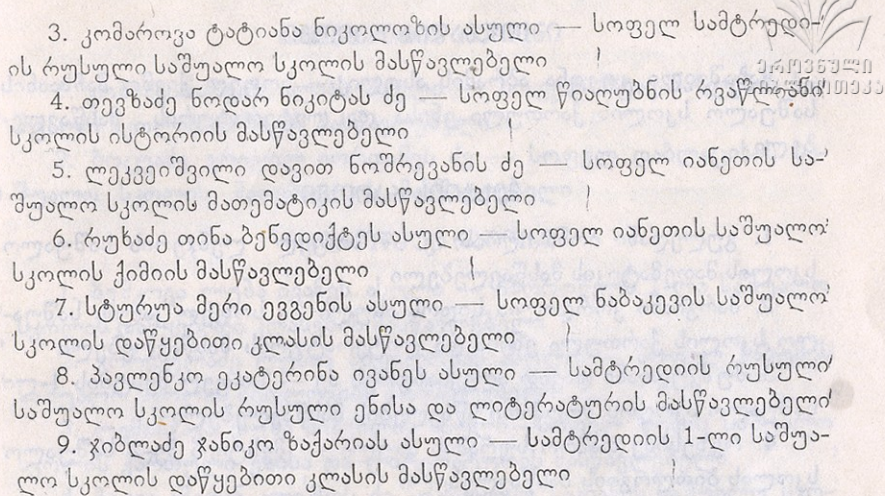 3. კომაროვა ტატიანა ნიკოლოზის ასული — სოფელ სამტრედი-
ის რუსული საშუალო სკოლის მასწავლებელი
ეროვნული
4. თევზაძე ნოდარ ნიკიტას ძე — სოფელ წიაღუბნის რვაწლიანი
სკოლის ისტორიის მასწავლებელი
5. ლეკვეიშვილი დავით ნოშრევანის ძე — სოფელ იანეთის სა-
შუალო სკოლის მათემატიკის მასწავლებელი
6. რუხაძე თინა ბენედიქტეს ასული — სოფელ იანეთის საშუალო
სკოლის ქიმიის მასწავლებელი
7. სტურუა მერი ევგენის ასული — სოფელ ნაბაკევის საშუალო
სკოლის დაწყებითი კლასის მასწავლებელი
8. პავლენკო ეკატერინა ივანეს ასული — სამტრედიის რუსული
საშუალო სკოლის რუსული ენისა და ლიტერატურის მასწავლებელი
9. ჯიბლაძე ჯანიკო ზაქარიას ასული — სამტრედიის 1-ლი საშუა-
ლო სკოლის დაწყებითი კლასის მასწავლებელი